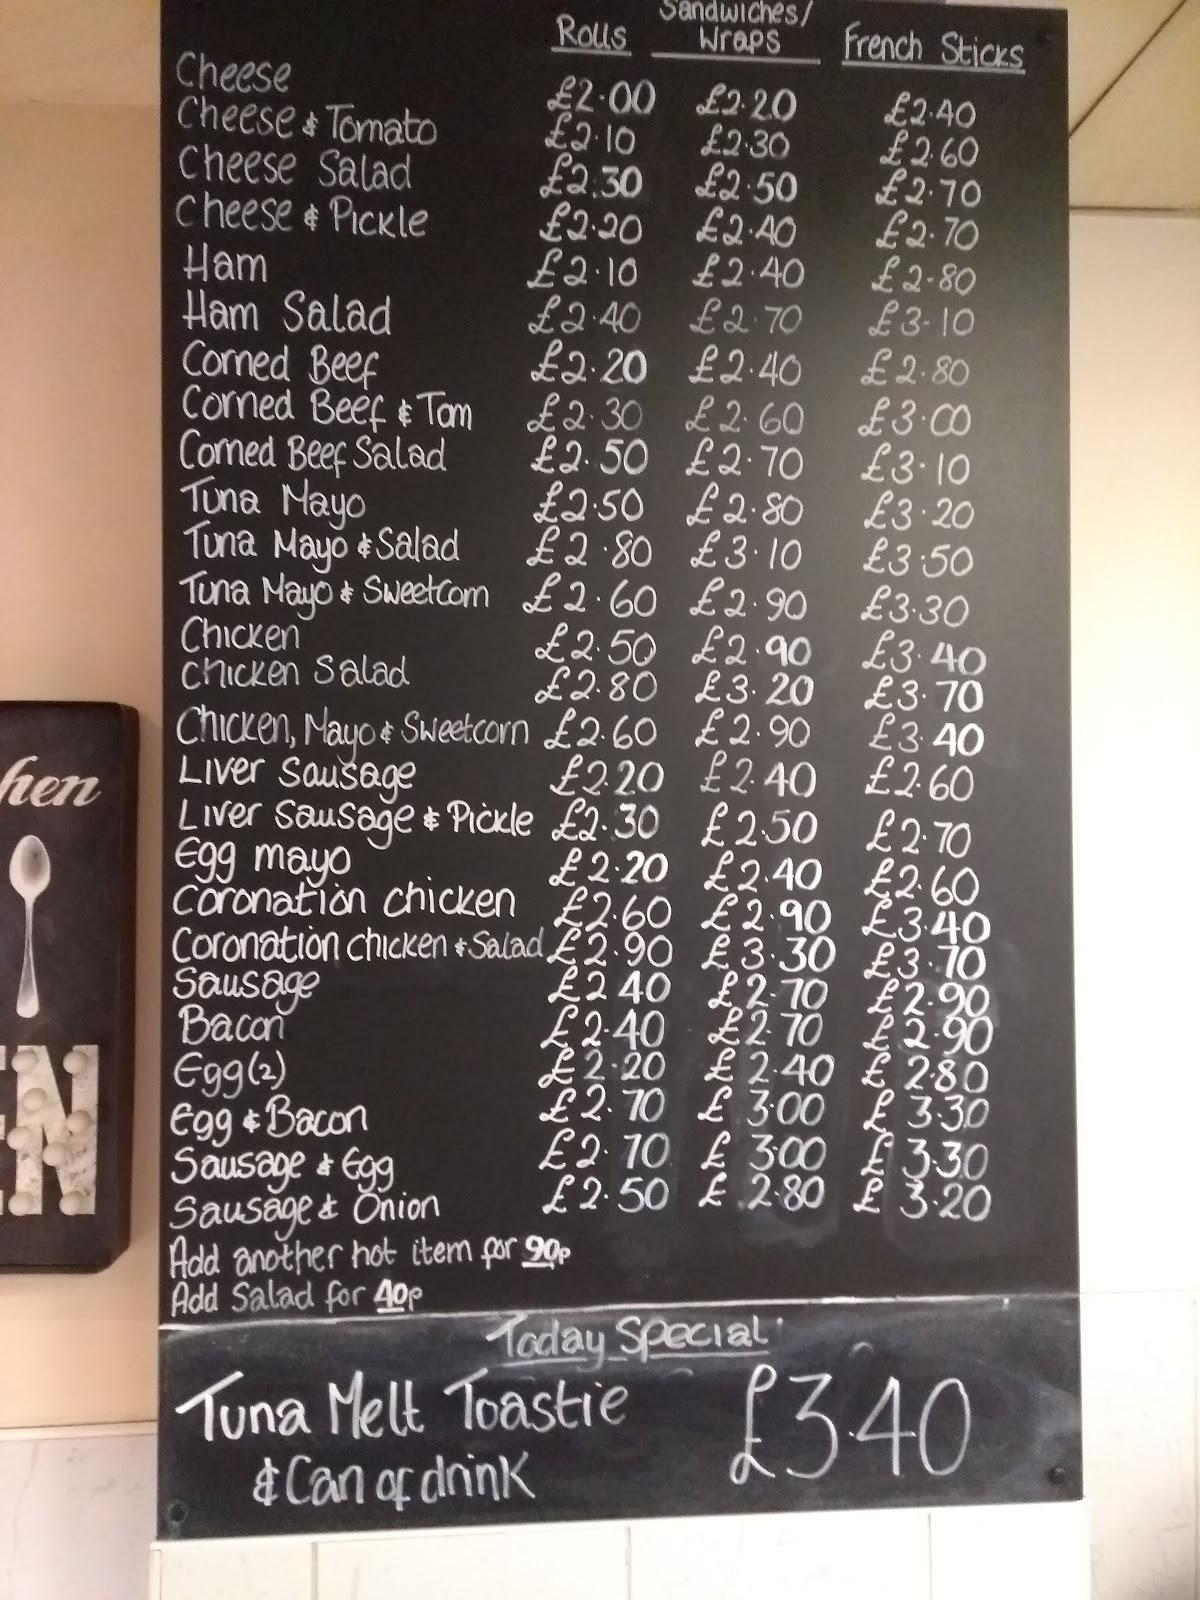 Rolls Sandwiches/ Wraps French Sticks
Cheese £2.00 £2.20 £2.40
Cheese & Tomato £2.10 £2.30 £2.60
Cheese Salad £2.30 £2.50 £2.70
Cheese & Pickle £2.20 £2.40 £2.70
Ham £2.10 £2.40 £2.80
Ham Salad £2.40 £2.70 £3.10
Corned Beef £2.20 £2.40 £2.80
Corned Beef & Tom £2.30 £2.60 £3.00
Corned Beef Salad £2.50 £2.70 £3.10
Tuna Mayo £2.50 £2.80 £3.20
Tuna Mayo & Salad £2.80 £3.10 £3.50
Tuna Mayo & Sweetcorn £2.60 £2.90 £3.30
Chicken £2.50 £2.90 £3.40
Chicken Salad £2.80 £3.20 £3.70
Chicken, Mayo & Sweetcorn £2.60 £2.90 £3.40
Liver Sausage £2.20 £2.40 £2.60
Liver Sausage & Pickle £2.30 £2.50 £2.70
Egg mayo £2.20 £2.40 £2.60
Coronation chicken £2.60 £2.90 £3.40
Coronation chicken & Salad £2.90 £3.30 £3.70
Sausage £2.40 £2.70 £2.90
Bacon £2.40 £2.70 £2.90
Egg (2) £2.20 £2.40 £2.80
Egg & Bacon £2.70 £3.00 £3.30
Sausage & Egg £2.70 £3.00 £3.30
Sausage & Onion £2.50 £2.80 £3.20
Add another hot item for 90p
Add Salad for 40p
Today Special
Tuna Melt Toastie £3.40
& Can of drink
hen
EN